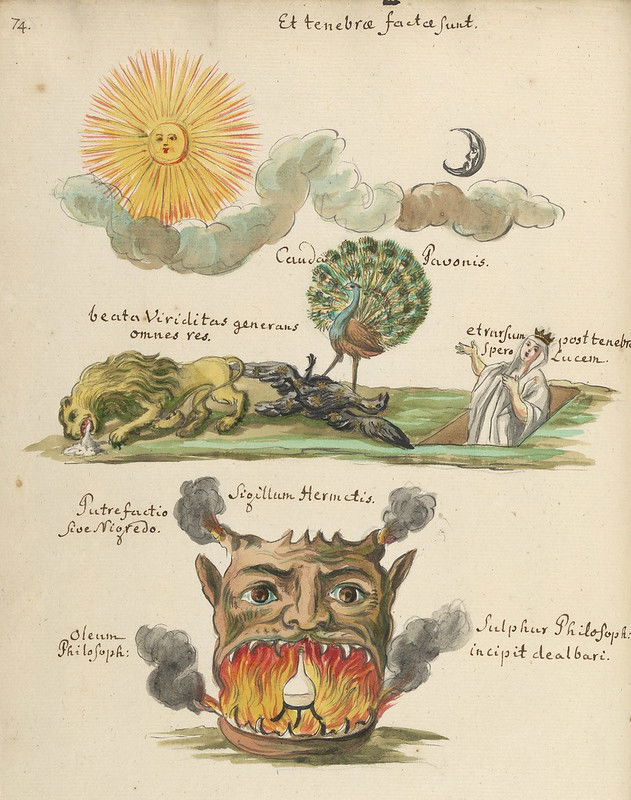 74.
Et tenebræ factæ sunt.
Cauda Pavonis.
beata Viriditas generans
omnes res.
et rursum post tenebra
Spero Lucem.
Sigillum Hermetis.
Putrefactio
sive Nigredo.
Oleum
Philosoph:
Sulphur Philosoph:
incipit dealbari.